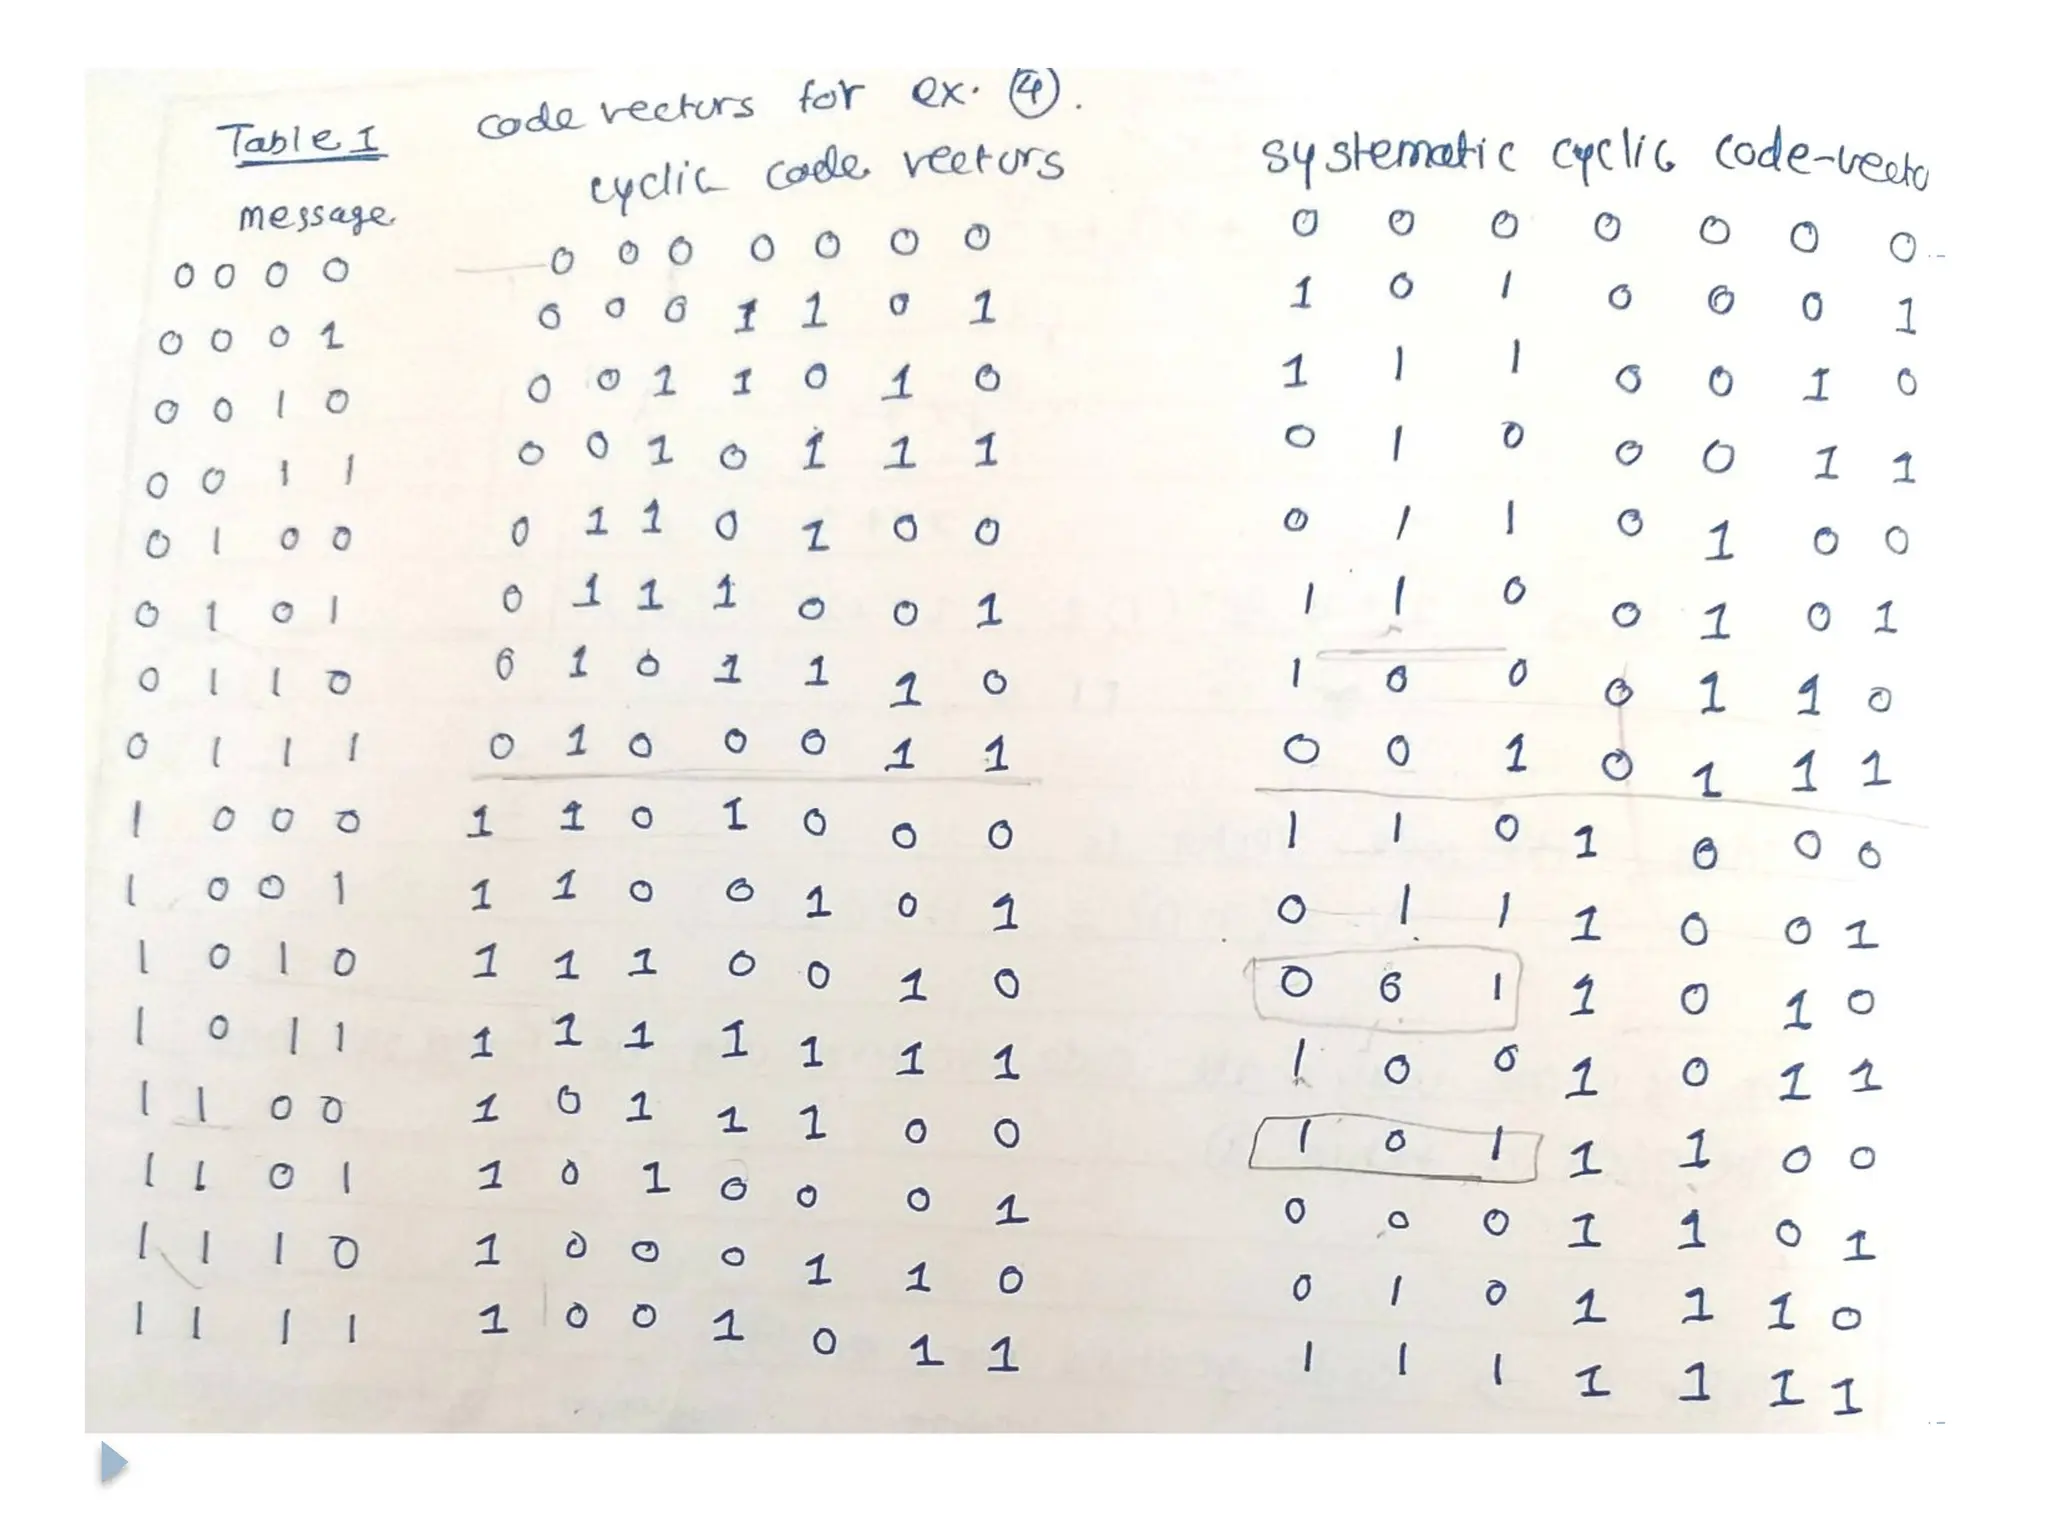 Table I code vectors for ex. ④.
message cyclic code vectors systematic cyclic code-vecto
0 0 0 0 0 0 0 0 0 0 0 0 0 0 0 0 0 0
0 0 0 1 0 0 0 1 1 0 1 1 0 1 0 0 0 1
0 0 1 0 0 0 1 1 0 1 0 1 1 1 0 0 1 0
0 0 1 1 0 0 1 0 1 1 1 0 1 0 0 0 1 1
0 1 0 0 0 1 1 0 1 0 0 0 1 1 0 1 0 0
0 1 0 1 0 1 1 1 0 0 1 1 1 0 0 1 0 1
0 1 1 0 0 1 0 1 1 1 0 1 0 0 0 1 1 0
0 1 1 1 0 1 0 0 0 1 1 0 0 1 0 1 1 1
1 0 0 0 1 1 0 1 0 0 0 1 1 0 1 0 0 0
1 0 0 1 1 1 0 0 1 0 1 0 1 1 1 0 0 1
1 0 1 0 1 1 1 0 0 1 0 0 0 1 1 0 1 0
1 0 1 1 1 1 1 1 1 1 1 1 0 0 1 0 1 1
1 1 0 0 1 0 1 1 1 0 0 1 0 1 1 1 0 0
1 1 0 1 1 0 1 0 0 0 1 0 0 0 1 1 0 1
1 1 1 0 1 0 0 0 1 1 0 0 1 0 1 1 1 0
1 1 1 1 1 0 0 1 0 1 1 1 1 1 1 1 1 1